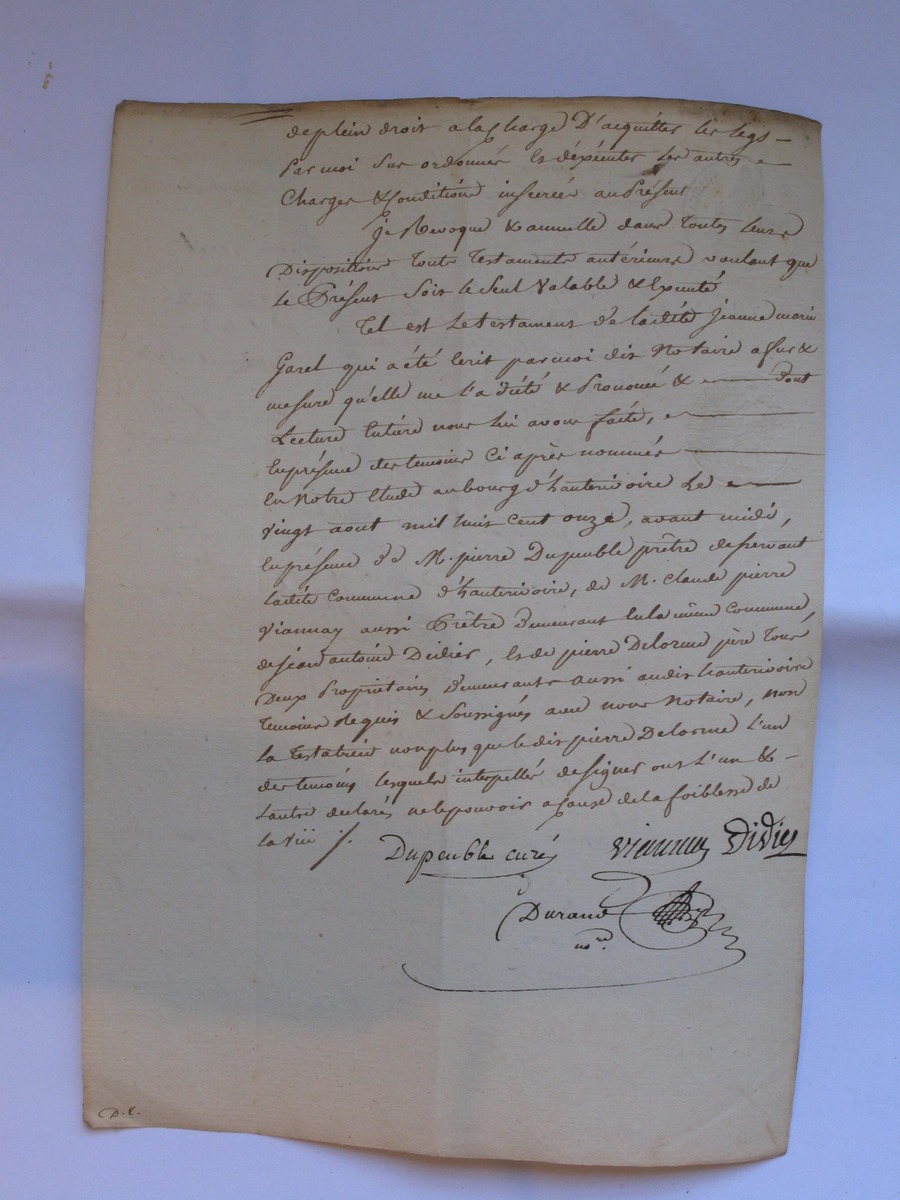 de plein droit a la Charge D'acquitter les legs —
Par moi sus ordonnés Et déxécuter les autres —
Charges & Conditions inscerées au Présent
Je Revoque & annulle dans Toutes leurs
Dispositions Touts Testaments antérieurs voulant que
le Présent Soit le Seul Valable & Exécuté
Tel est Le testament De ladite Jeanne marie
Garel qui a été Ecrit par moi dit Notaire a fur &
mesure qu'elle me l'a dicté & Prononcé & — Dont
Lecture Entière nous lui avons faite, —
En présence des temoins Ci après nommés —
En Notre Etude au bourg d'hauterivoire Le —
Vingt aout mil huit Cent onze, avant midi,
En présence De M. pierre Dupeuble prêtre desservant
ladite Commune d'hauterivoire, de M. Claude pierre
Viannay aussi Prêtre Demeurant En la même Commune,
de jean antoine Didier, Et de pierre Delorme père Tous
Deux Propriétaires Demeurants aussi audit hauterivoire
Temoins Requis & Soussignés avec nous Notaire, non
la Testatrice non plus que le dit pierre Delorme L'un
des temoins lesquels interpellés de signer ont L'un & —
L'autre declarés ne le pouvoir a Cause de la foiblesse de
la vue ./.
Dupeuble curé Viannay Didier
Durand
nre
D. C.